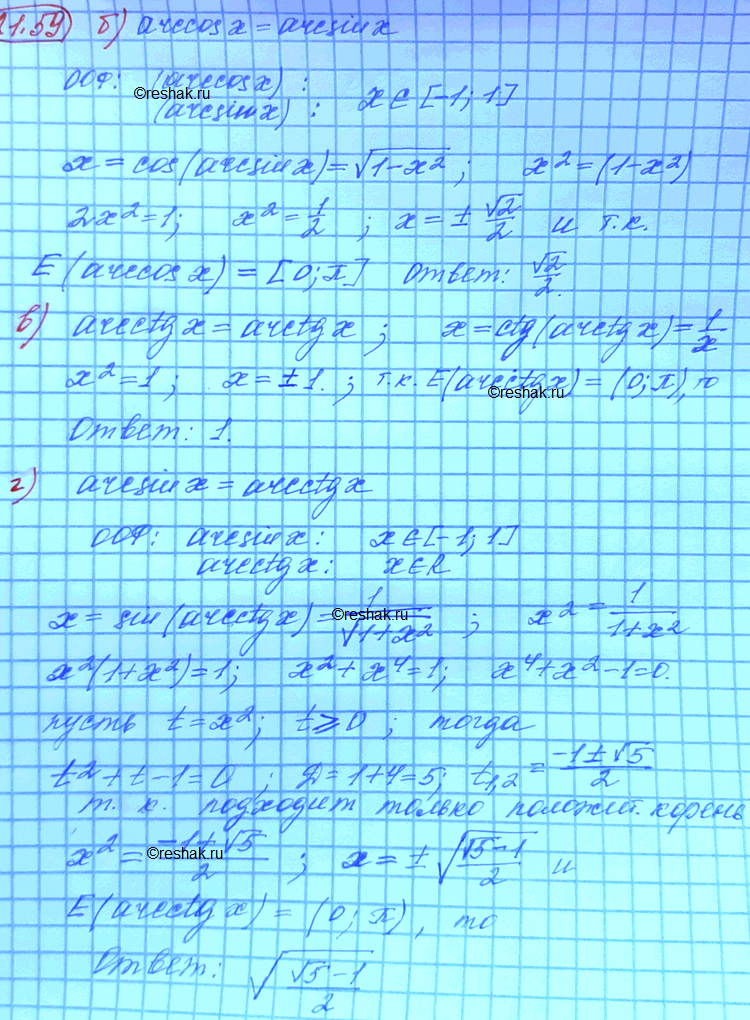 1.59) б) arccos x = arcsin x
ООФ: (arccos x) :
(arcsin x) : x ∈ [-1; 1]
©reshak.ru
x = cos(arcsin x) = √(1-x²) ; x² = (1-x²)
2x² = 1; x² = 1/2 ; x = ± √2/2 и т.к.
E (arccos x) = [0; π] Ответ: √2/2.
в) arcctg x = arctg x ; x = ctg(arctg x) = 1/x
x² = 1 ; x = ± 1. ; т.к. E(arcctg x) = (0; π), то
©reshak.ru
Ответ: 1.
г) arcsin x = arcctg x
ООФ: arcsin x : x ∈ [-1; 1]
arcctg x : x ∈ R
x = sin (arcctg x) = 1/√(1+x²) ; x² = 1/(1+x²)
©reshak.ru
x²(1+x²) = 1; x² + x⁴ = 1; x⁴ + x² - 1 = 0.
пусть t = x²; t ⩾ 0 ; тогда
t² + t - 1 = 0 ; D = 1+4 = 5; t₁,₂ = (-1 ± √5)/2
т. к. подходит только положит. корень
x² = (-1+√5)/2 ; x = ± √((√5-1)/2) и
©reshak.ru
E(arcctg x) = (0; π), то
Ответ: √((√5-1)/2)